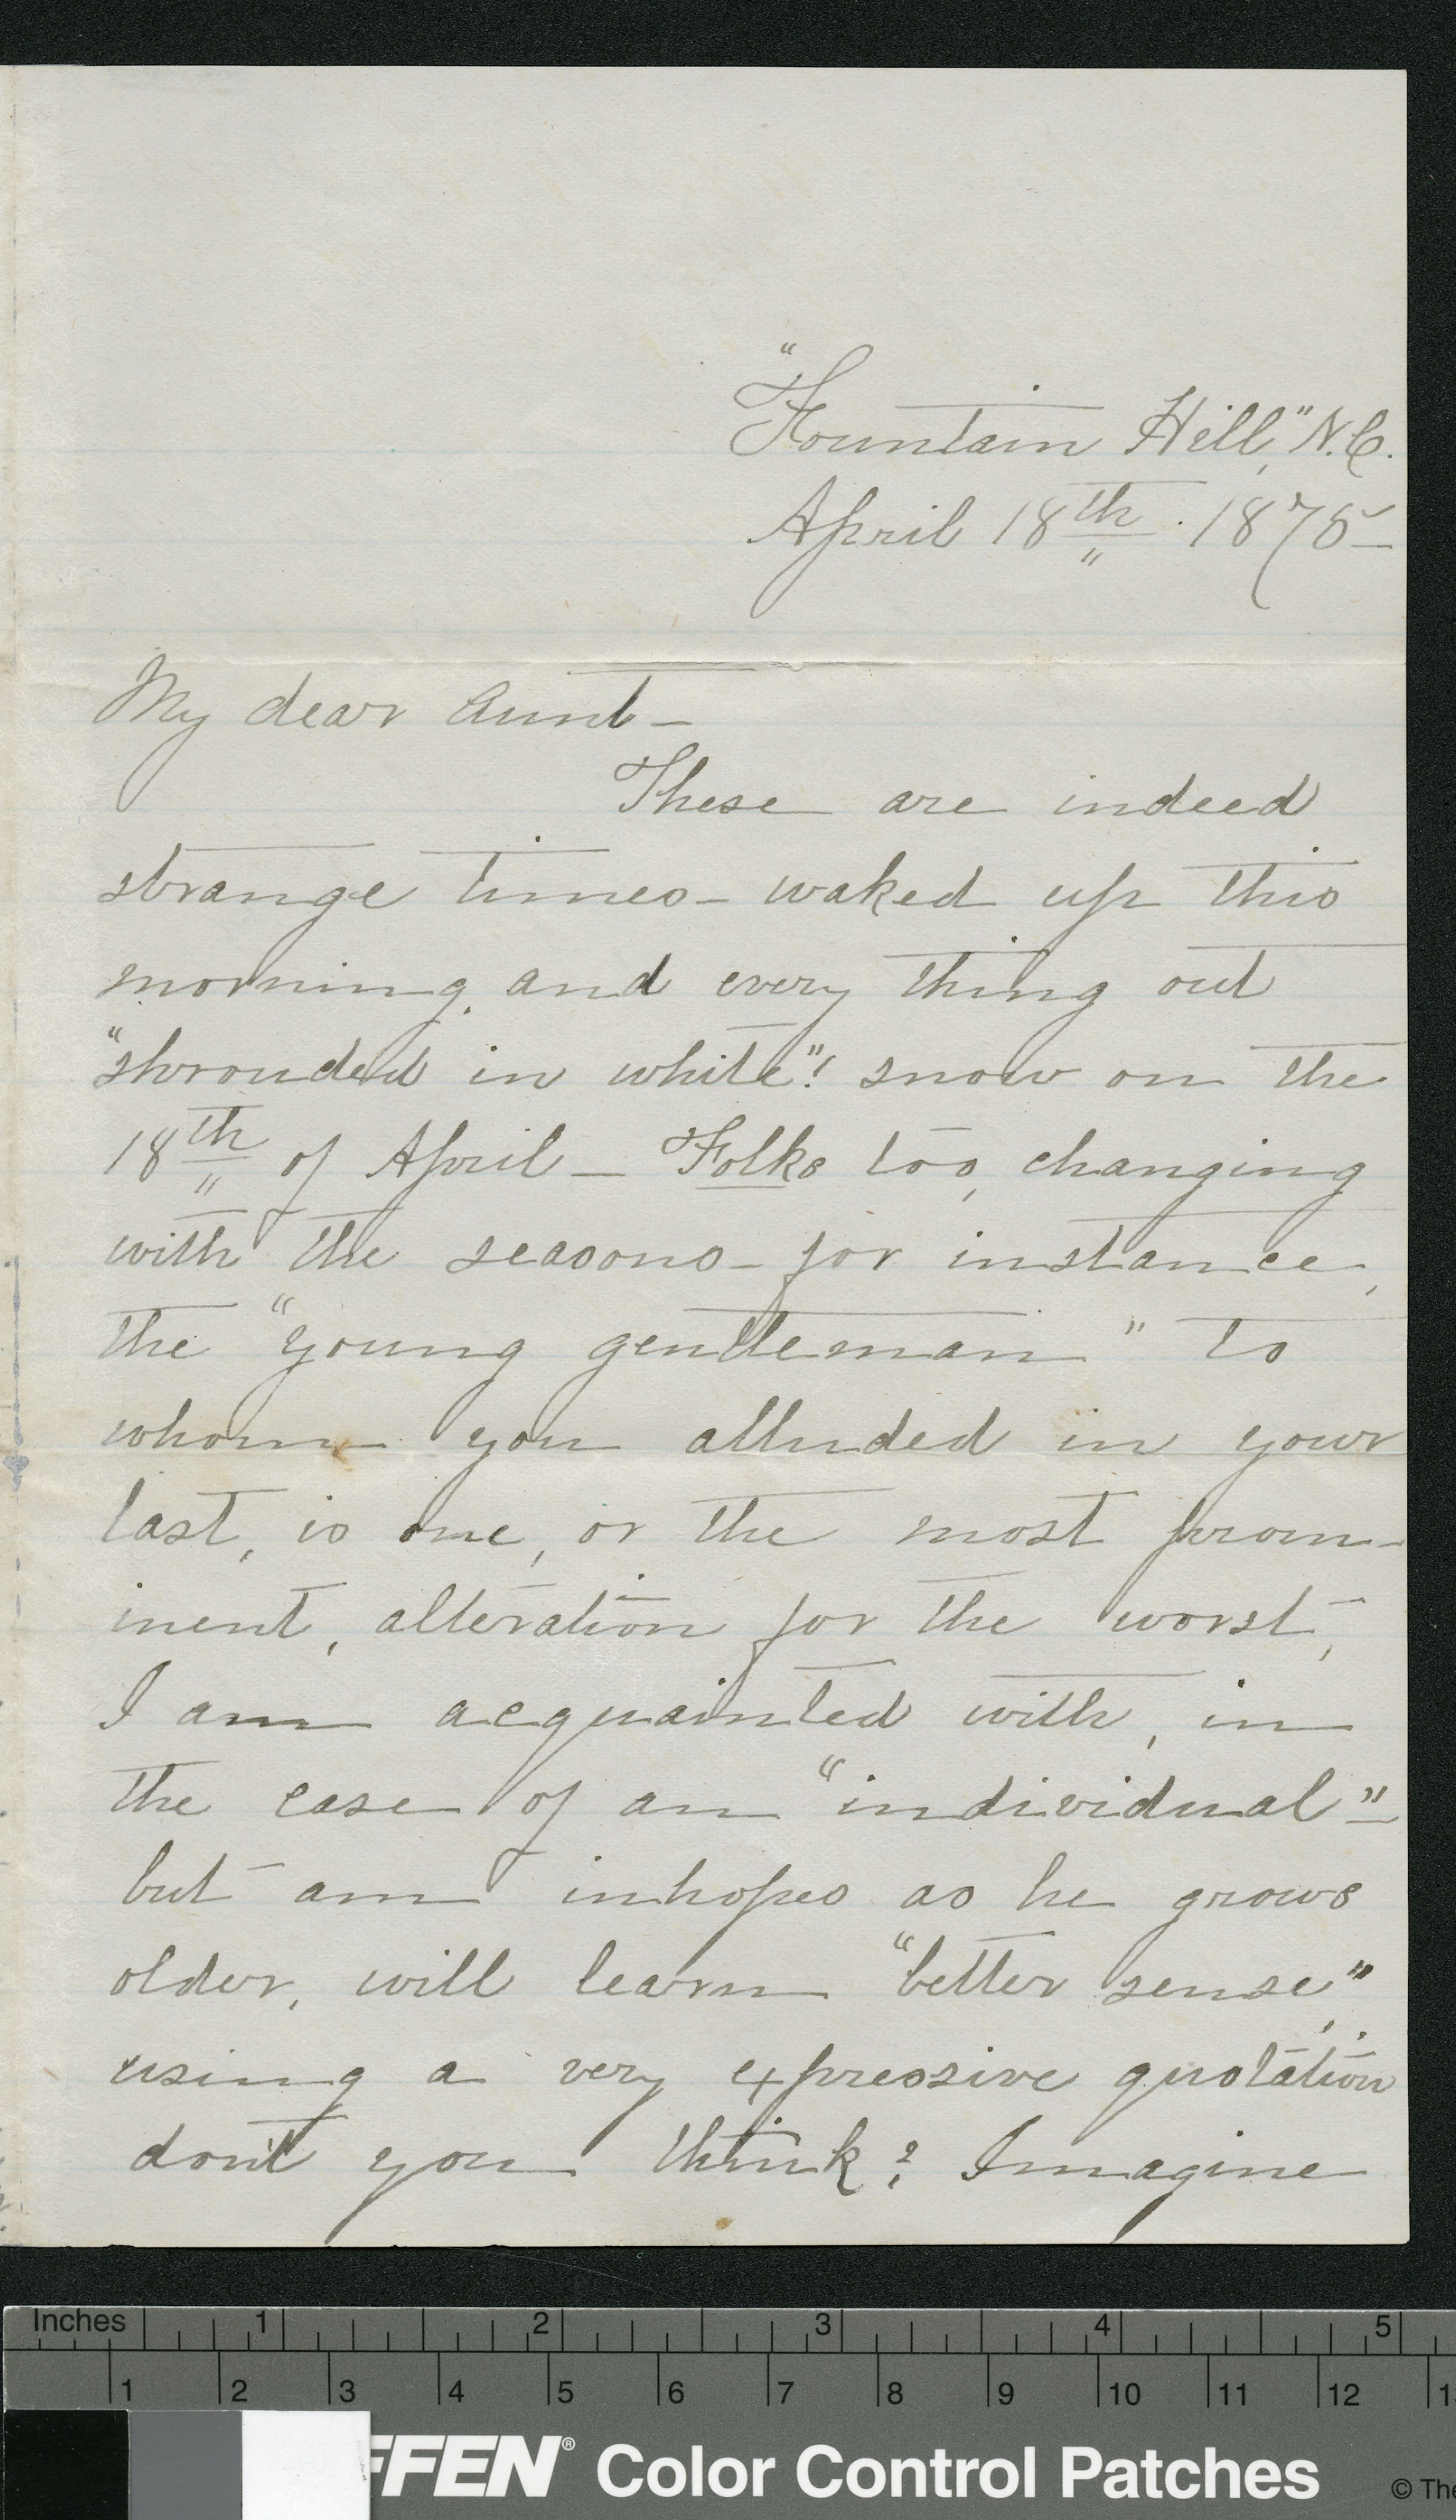 "Fountain Hill," N.C.
April 18th. 1875-
My dear Aunt-
These are indeed
strange times- waked up this
morning, and every thing out
"shrouded in white"! snow on the
18th of April- Folks too, changing
with the seasons- for instance,
the "young gentleman" to
whom you alluded in your
last, is one, or the most prom-
inent, alteration for the worst,
I am acquainted with, in
the case of an "individual"-
but am inhopes as he grows
older, will learn "better sense",
using a very expressive quotation
don't you think? Imagine
Inches 1 2 3 4 5
1 2 3 4 5 6 7 8 9 10 11 12
FFEN® Color Control Patches
© The